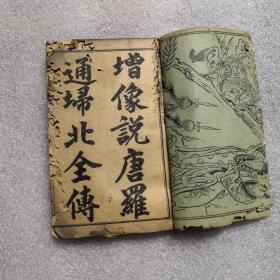 增像說唐羅
通埽北全傳